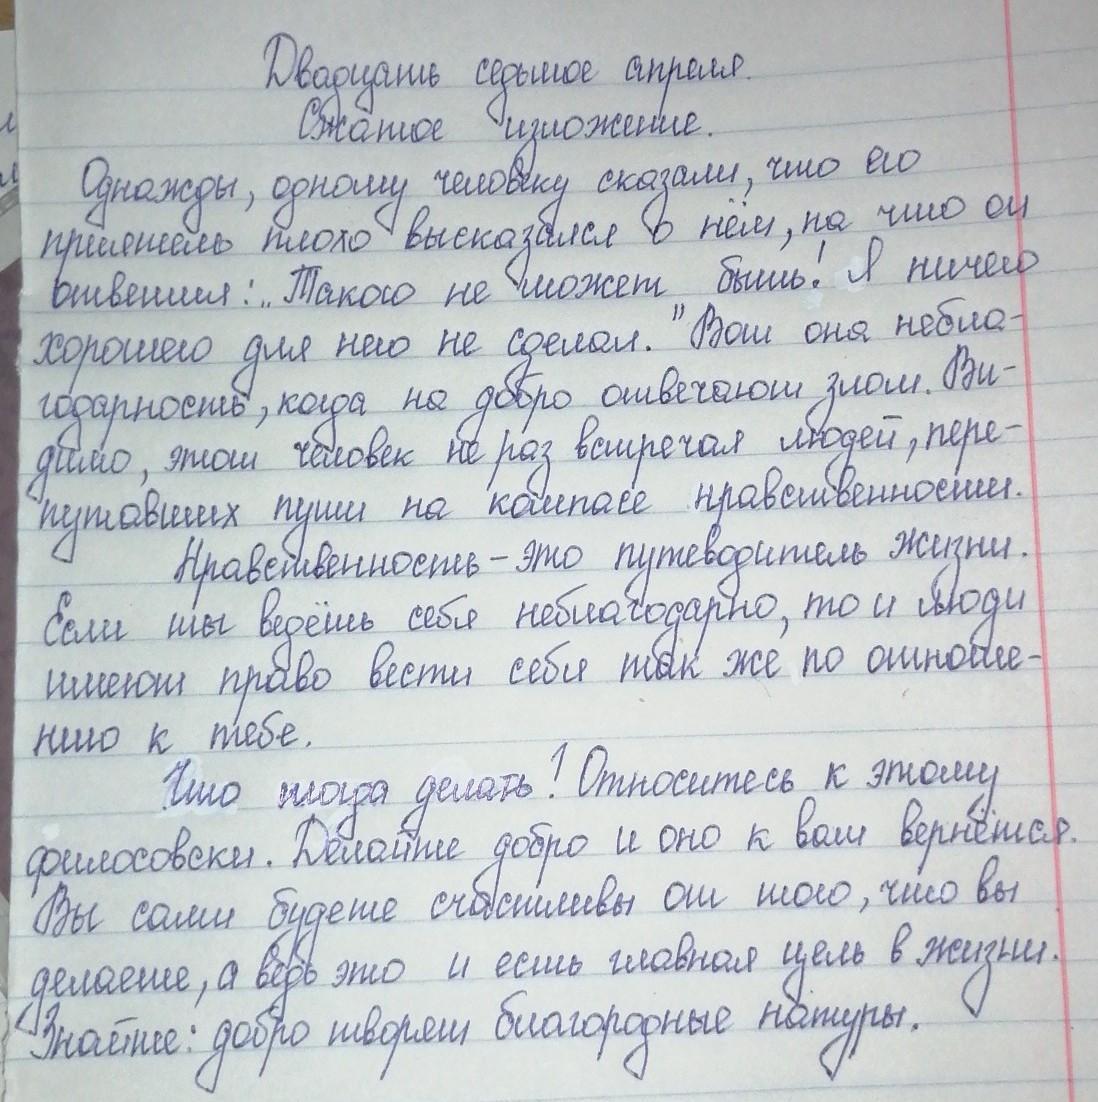 Двадцать седьмое апреля.
Сжатое изложение.
Однажды, одному человеку сказали, что его
приятель плохо высказался о нём, на что он
ответил: „Такого не может быть! Я ничего
хорошего для него не сделал." Вот она небла-
годарность, когда на добро отвечают злом. Ви-
димо, этот человек не раз встречал людей, пере-
путавших пути на компасе нравственности.
Нравственность - это путеводитель жизни.
Если ты ведёшь себя неблагодарно, то и люди
имеют право вести себя так же по отноше-
нию к тебе.
Что тогда делать! Относитесь к этому
филосовски. Делайте добро и оно к вам вернётся.
Вы сами будете счастливы от того, что вы
делаете, а ведь это и есть главная цель в жизни.
Знайте: добро творят благородные натуры.